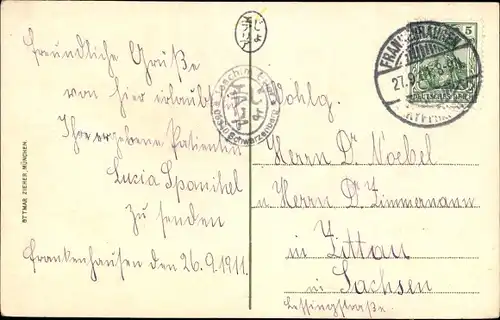 freundliche Grüße
von hier erlaubt
Ihre ergebene Patientin
Lucia Spanihel
zu senden
Frankenhausen den 26.9.1911.
OTTMAR ZIEHER, MÜNCHEN.
Joachim
08340 Schwarzenberg
FRANKENHAUSEN
27.9.11
KYFFH.
5
DEUTSCHES REICH
Wohlg.
Herrn Dr Noebel
u Herrn Dr Zimmermann
in Zittau
in Sachsen
Lessingstraße.